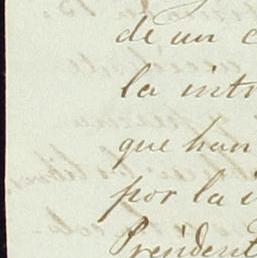 de un c
la intr
que han
por la i
President